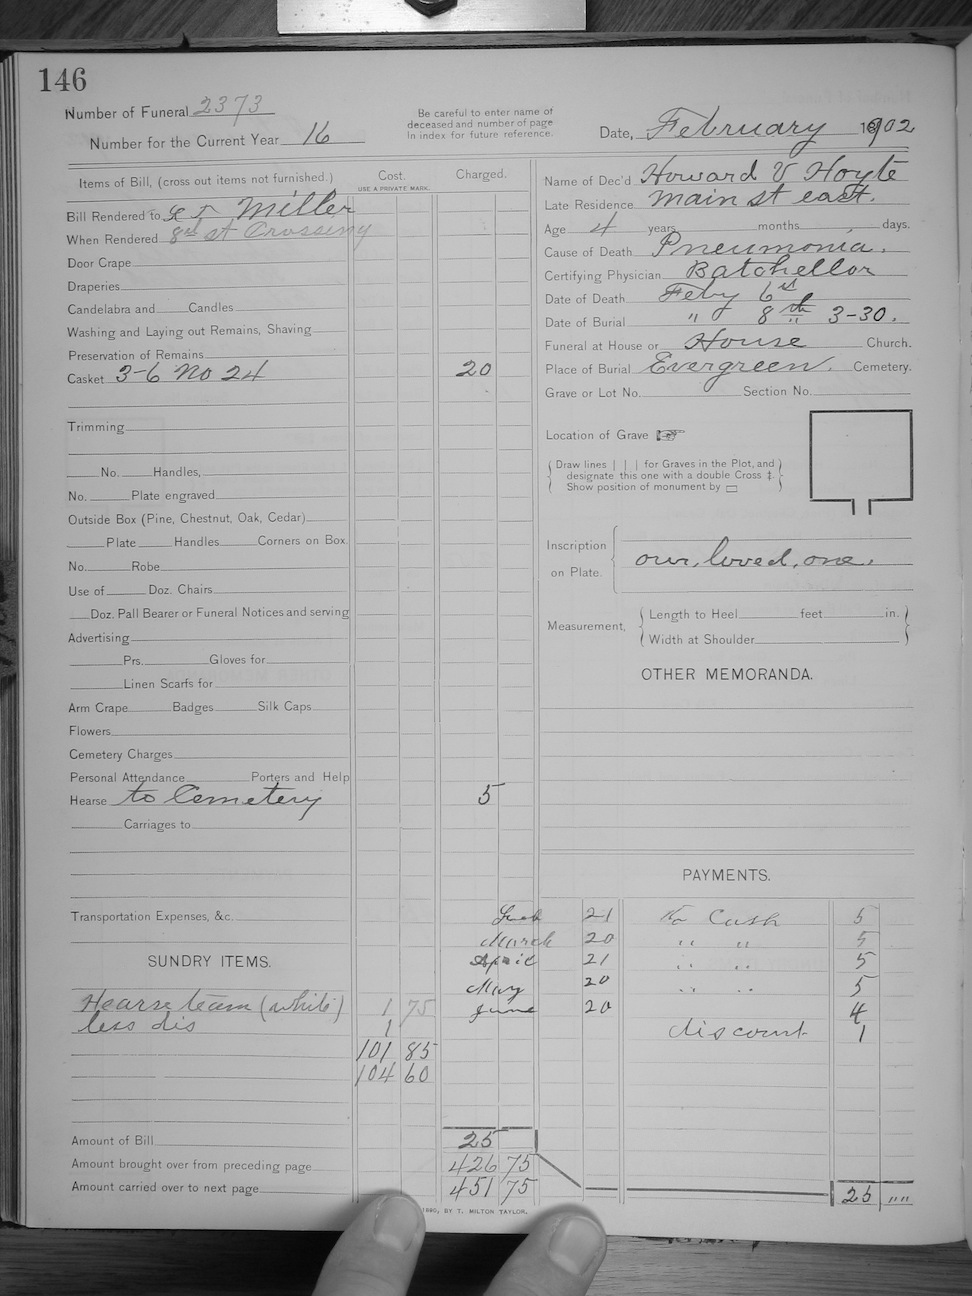 146
Number of Funeral 2373
Number for the Current Year 16
Be careful to enter name of
deceased and number of page
in index for future reference.
Date, February 1902
Items of Bill, (cross out items not furnished.)
Cost.
USE A PRIVATE MARK.
Charged.
Bill Rendered to L T Miller
When Rendered 8th st Crossing
Door Crape
Draperies
Candelabra and Candles
Washing and Laying out Remains, Shaving
Preservation of Remains
Casket 3-6 No 24 20
Trimming
No. Handles,
No. Plate engraved
Outside Box (Pine, Chestnut, Oak, Cedar)
Plate Handles Corners on Box.
No. Robe
Use of Doz. Chairs
Doz. Pall Bearer or Funeral Notices and serving
Advertising
Prs. Gloves for
Linen Scarfs for
Arm Crape Badges Silk Caps
Flowers
Cemetery Charges
Personal Attendance Porters and Help
Hearse to Cemetery 5
Carriages to
Transportation Expenses, &c.
SUNDRY ITEMS.
Hearse team (white) 1 75
less dis 1
101 85
104 60
Amount of Bill 25
Amount brought over from preceding page 426 75
Amount carried over to next page 451 75
1890, BY T. MILTON TAYLOR.
Name of Dec'd Howard V Hoyte
Late Residence main st east.
Age 4 years months days.
Cause of Death Pneumonia.
Certifying Physician Batchellor
Date of Death Feby 6st
Date of Burial " 8th 3-30.
Funeral at House or House Church.
Place of Burial Evergreen. Cemetery.
Grave or Lot No. Section No.
Location of Grave
Draw lines | | | for Graves in the Plot, and
designate this one with a double Cross ‡.
Show position of monument by
Inscription
on Plate.
our, loved, one.
Measurement,
Length to Heel feet in.
Width at Shoulder
OTHER MEMORANDA.
PAYMENTS.
Feb 21 To Cash 5
March 20 " " 5
April 21 " " 5
May 20 " " 5
June 20 4
discount 1
25 ""